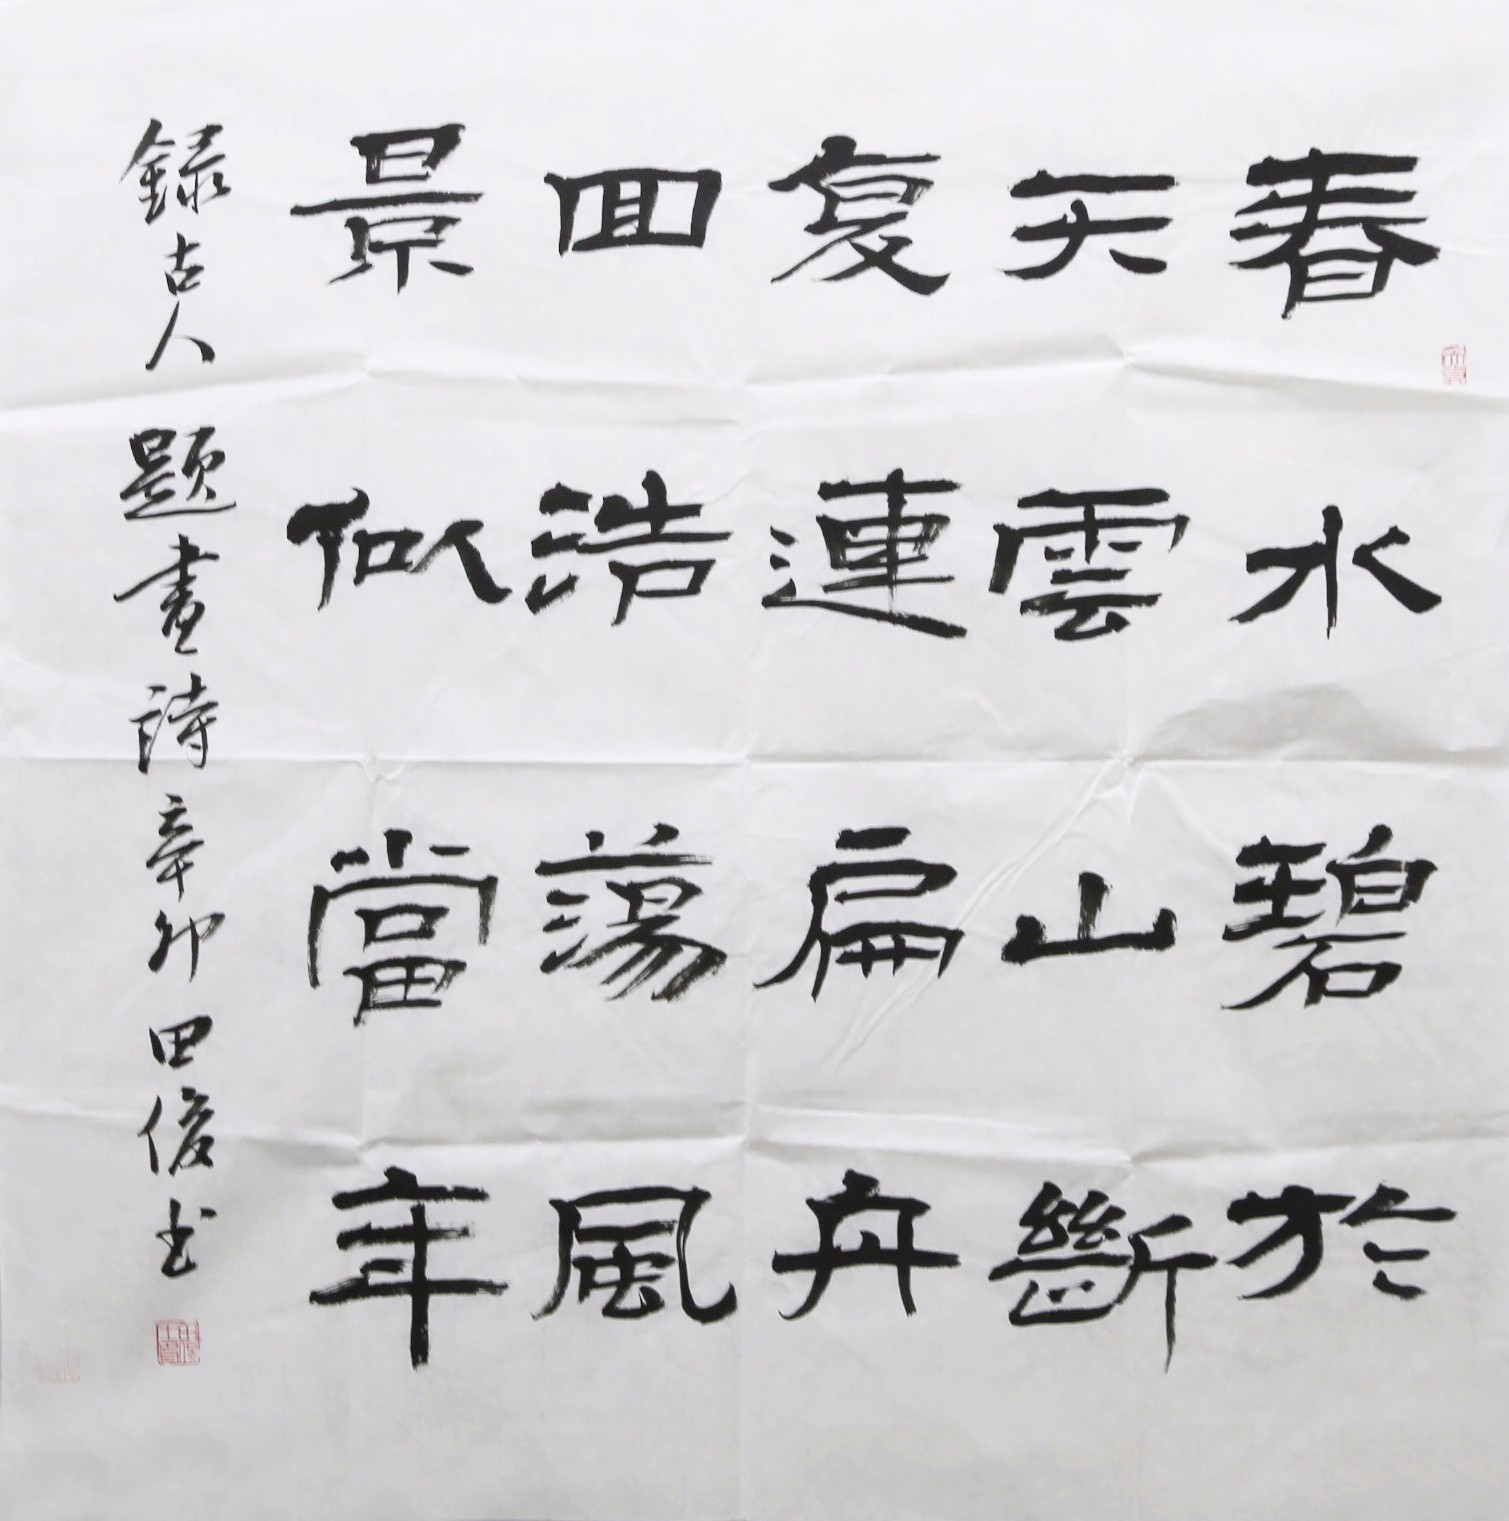 春水碧於
天雲山斷
复連扁舟
回浩蕩風
景似當年
錄古人題畫詩辛卯田俊书